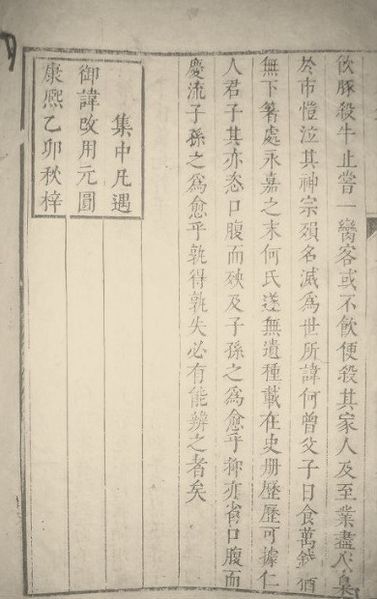 飲豚殺牛止嘗一臠客或不飲便殺其家人及至業盡人臬
於市愷泣其神宗殞名滅為世所諱何曾父子日食萬錢猶
無下箸處永嘉之末何氏遂無遺種載在史册歷歷可據仁
人君子其亦恣口腹而殃及子孫之為愈乎抑亦省口腹而
慶流子孫之為愈乎孰得孰失必有能辨之者矣
集中凡遇
御諱改用元圓
康熙乙卯秋梓